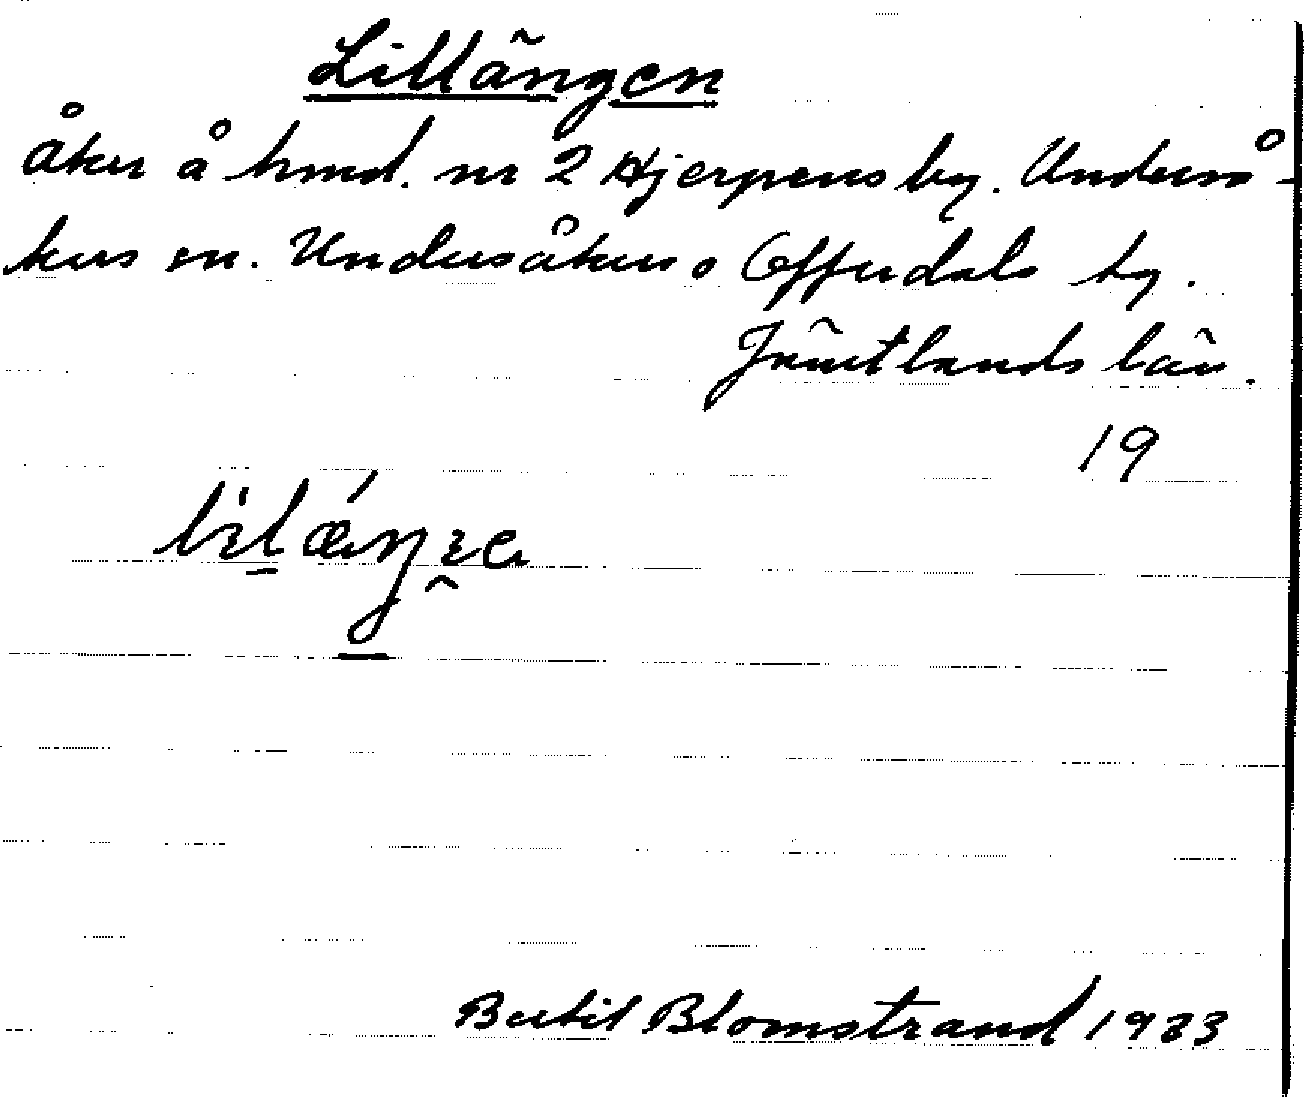 Lillängen
Åker å hmd. nr 2 Hjerpens by. Underså-
kers sn. Undersåkers o Offerdals tg.
Jämtlands län.
19
Bertil Blomstrand 1933